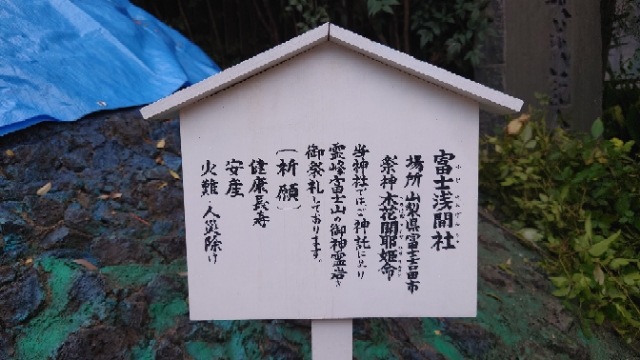 富士浅間社
場所 山梨県富士吉田市
祭神 木花開耶姫命
当神社では、ご神託により
霊峰富士山の御神霊岩を
御祭礼しております。
（祈願）
健康長寿
安産
火難・人災除け